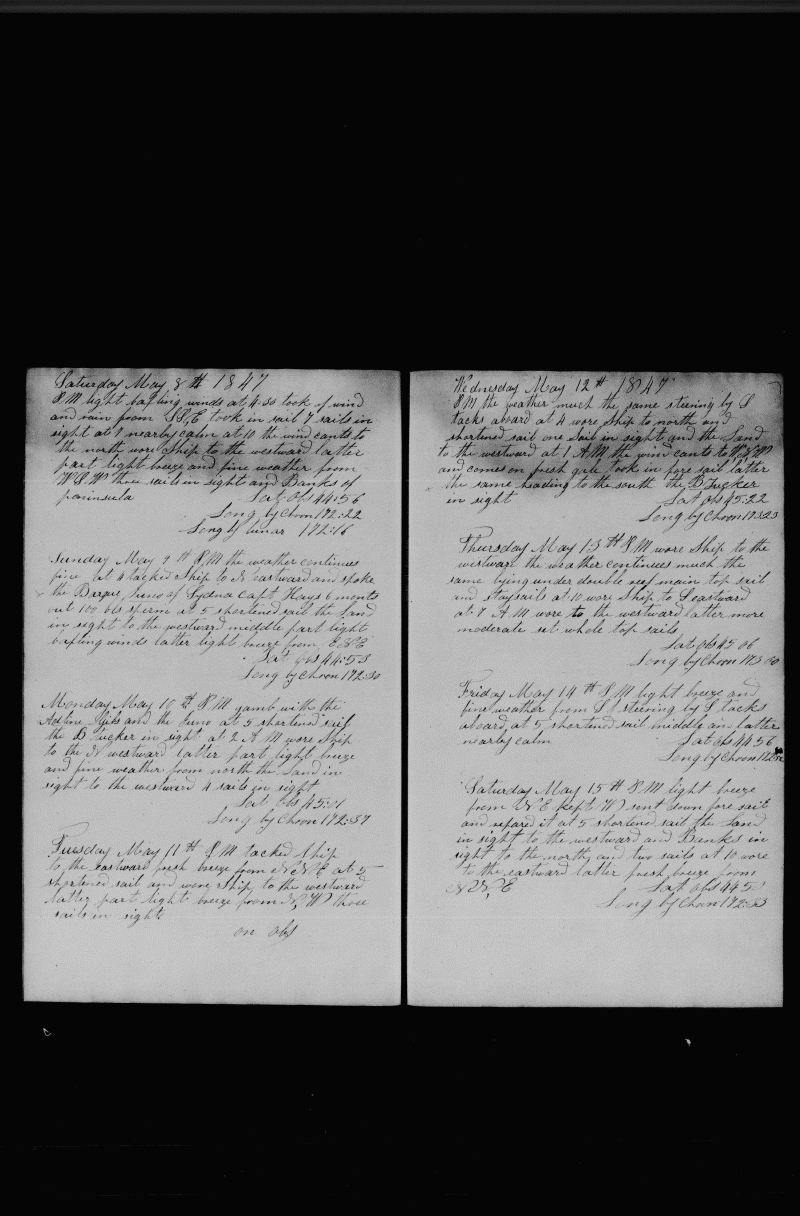 Saturday May 8th 1847
P.M light bafling winds at 4.30 took of wind
and rain from SSE took in sail 7 sails in
sight at 7 nearby calm at 10 the wind cants to
the north wore Ship to the westward latter
part light breeze and fine weather from
WSW three sails in sight and Banks of
paninsula Lat obs 44:56
Long by Chron 172:22
Long by lunar 172:16
Sunday May 9th P.M the weather continues
fine at 4 tacked Ship to N eastward and spoke
the Barque Juno of Sydna Capt Hays 6 monts
out 100 bls sperm at 5 shortened sail the Land
in sight to the westward middle part light
bafling winds latter light breeze from ENE
Lat obs 44:53
Long by Chron 172:30
Monday May 10th P.M gamb with the
Adline Gibs and the Juno at 5 shortened sail
the B Tucker in sight at 2 A M wore Ship
to the N westward latter part light breeze
and fine weather from north the Land in
sight to the westward 4 sails in sight
Lat obs 45:01
Long by Chron 172:37
Tuesday May 11th P.M tacked Ship
to the eastward fresh breeze from NNE at 5
shortened sail and wore Ship to the westward
latter part light breeze from NW three
sails in sight
on obs
Wednesday May 12th 1847
P.M the weather much the same steering by S
tacks aboard at 4 wore Ship to north and
shortened sail one Sail in sight and the Land
to the westward at 1 A.M the wind cants to
and comes on fresh gale took in fore sail latter
the same heading to the south the B Tucker
in sight Lat obs 45:22
Long by Chron 173:23
Thursday May 13th P.M wore Ship to the
westward the weather continues much the
same lying under double reef main top sail
and staysails at 10 wore Ship to S eastward
at 7 A.M wore to the westward latter more
moderate set whole top sails
Lat obs 45 06
Long by Chron 173 00
Friday May 14th P.M light breeze and
fine weather from steering by S tacks
aboard at 5 shortened sail middle and latter
nearby calm Lat obs 44 56
Long by Chron
Saturday May 15th P.M light breeze
from NE kept W sent down fore sail
and repared it at 5 shortend sail the Land
in sight to the westward and Banks in
sight to the north and two sails at 10 wore
to the eastward latter fresh breeze from
NNE Lat obs 44 5
Long by Chron 172:53